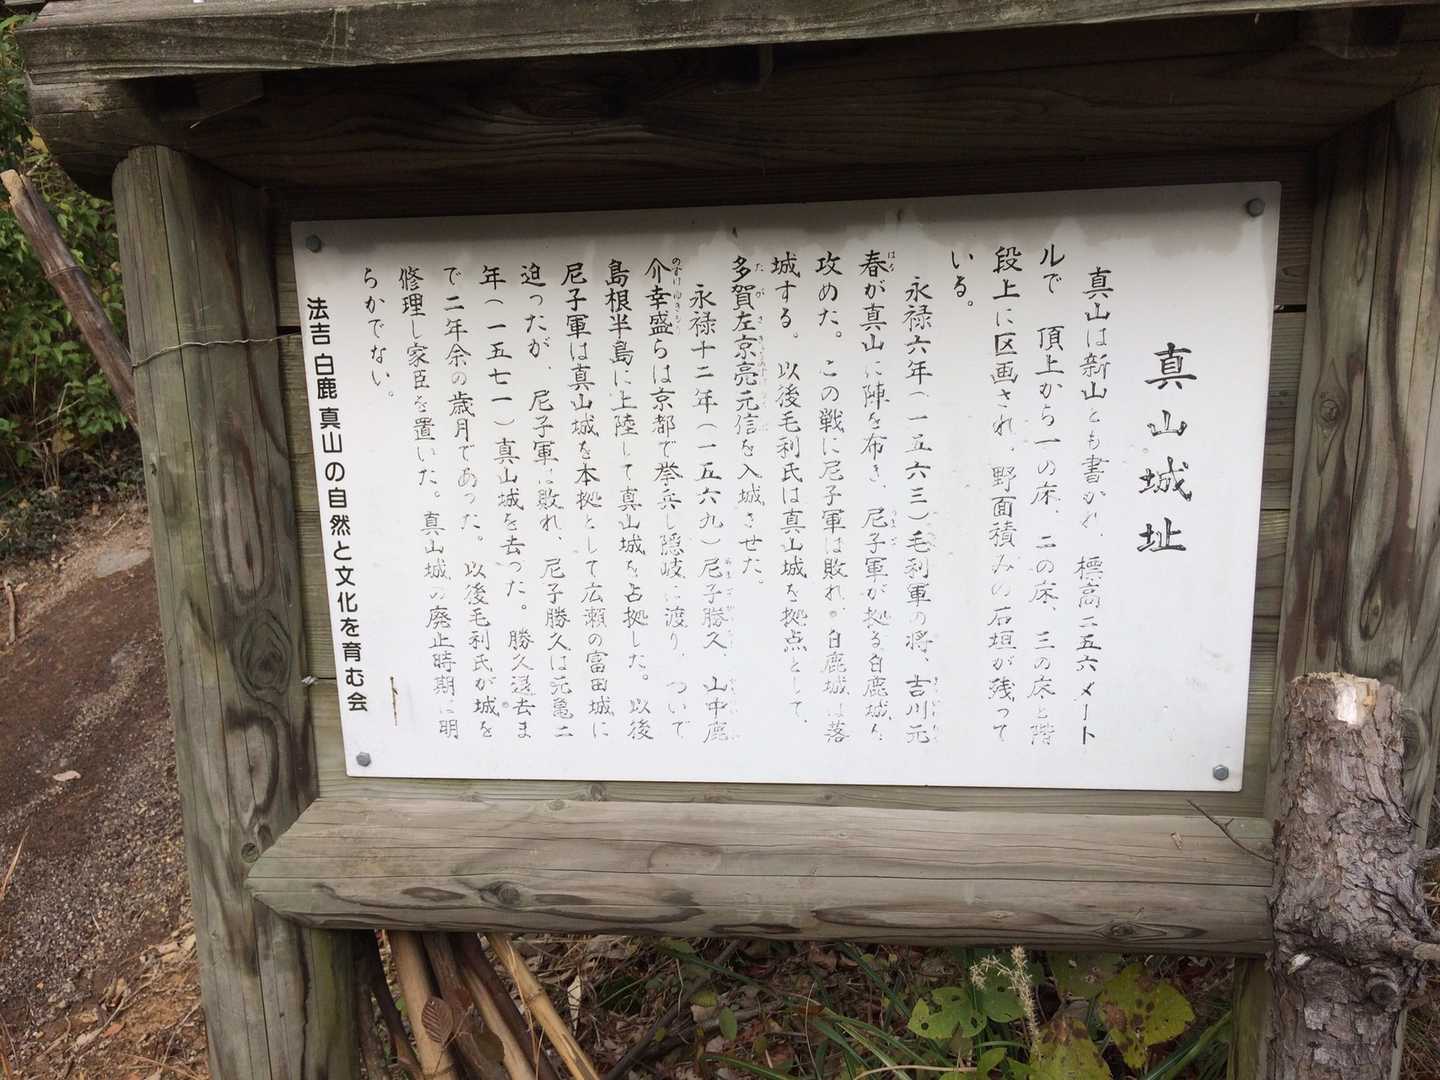 真山城址
真山は新山とも書かれ、標高二五六メート
ルで 頂上から一の床、二の床、三の床と階
段上に区画され、野面積みの石垣が残って
いる。
永禄六年(一五六三)毛利軍の将、吉川元
春が真山に陣を布き、尼子軍が拠る白鹿城を
攻めた。この戦に尼子軍は敗れ、白鹿城は落
城する。以後毛利氏は真山城を拠点として、
多賀左京亮元信を入城させた。
永禄十二年(一五六九)尼子勝久、山中鹿
介幸盛らは京都で挙兵し隠岐に渡り、ついで
島根半島に上陸して真山城を占拠した。以後
尼子軍は真山城を本拠として広瀬の富田城に
迫ったが、尼子軍は敗れ、尼子勝久は元亀二
年(一五七一)真山城を去った。勝久退去ま
で二年余の歳月であった。以後毛利氏が城を
修理し家臣を置いた。真山城の廃止時期は明
らかでない。
法吉 白鹿 真山の自然と文化を育む会